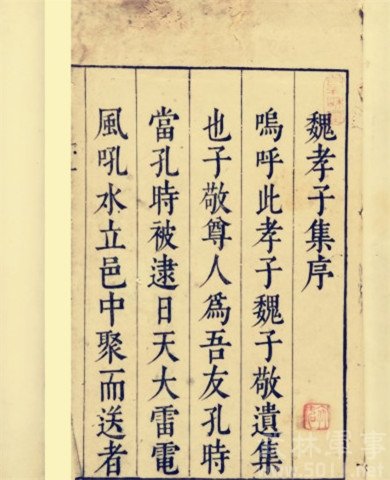 魏孝子集序
嗚呼此孝子魏子敬遺集
也子敬尊人爲吾友孔時
當孔時被逮日天大雷電
風吼水立邑中聚而送者